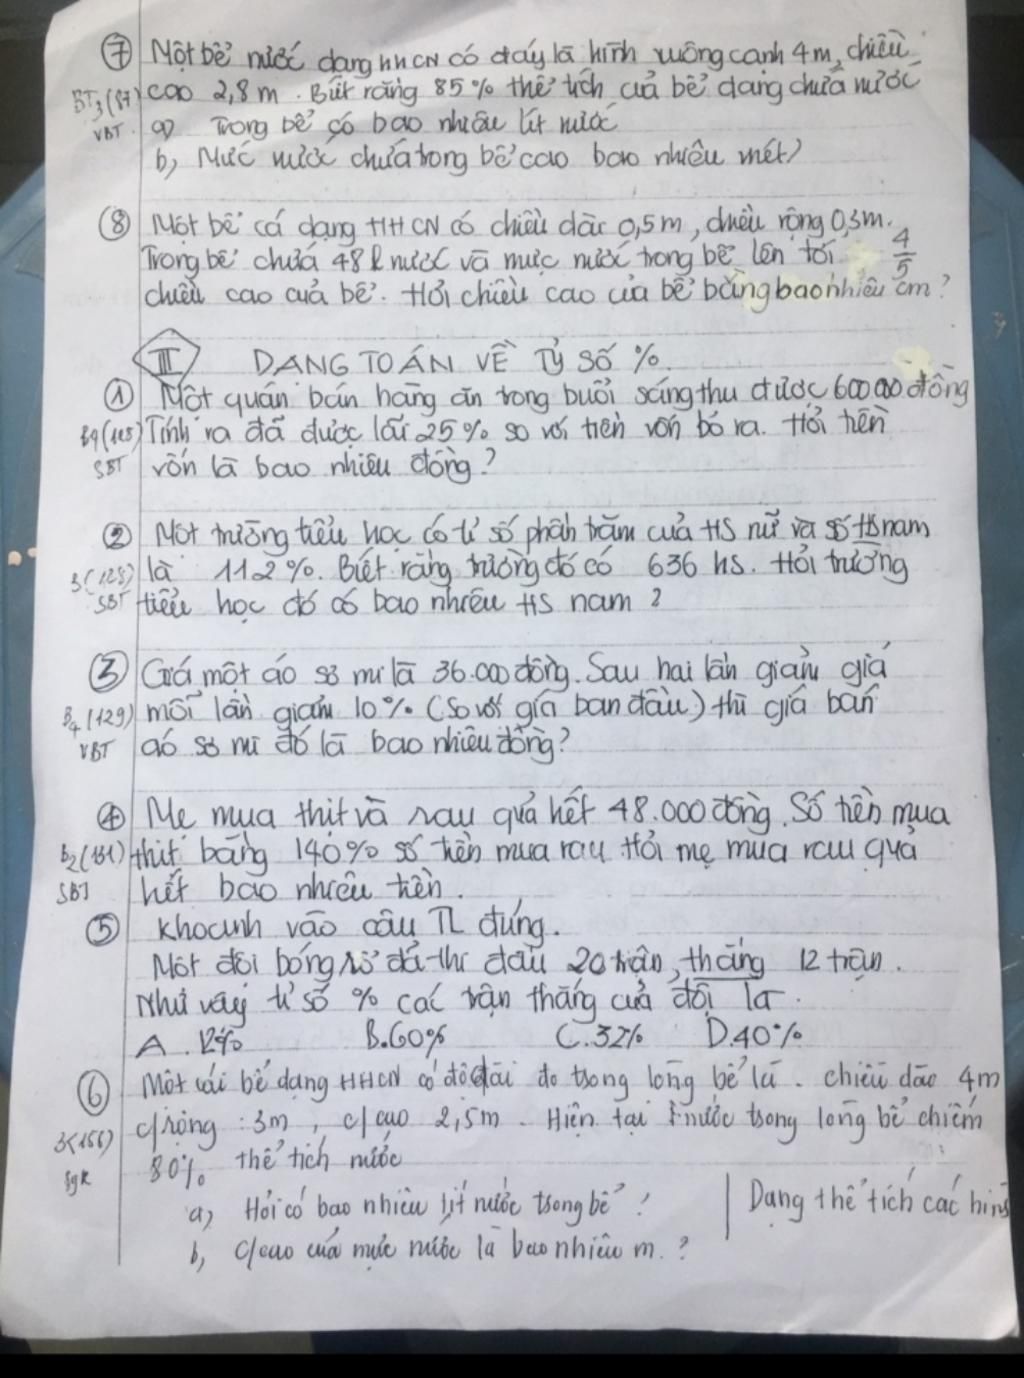 ⑦ Một bể nước dạng HHCN có đáy là hình vuông cạnh 4m, chiều
BT3(87) cao 2,8 m. Biết rằng 85% thể tích của bể đang chứa nước
VBT. a) Trong bể có bao nhiêu lít nước
b, Mức nước chứa trong bể cao bao nhiêu mét)
⑧ Một bể cá dạng HHCN có chiều dài 0,5m, chiều rộng 0,3m.
Trong bể chứa 48 l nước và mực nước trong bể lên tới 4/5
chiều cao của bể. Hỏi chiều cao của bể bằng bao nhiêu cm?
III DẠNG TOÁN VỀ TỶ SỐ %.
① Một quán bán hàng ăn trong buổi sáng thu được 600000 đồng
(128) Tính ra đã được lãi 25% so với tiền vốn bỏ ra. Hỏi tiền
SBT vốn là bao nhiêu đồng?
② Một trường tiểu học có tỉ số phần trăm của HS nữ và số HS nam
3(128) là 112%. Biết rằng trường đó có 636 hs. Hỏi trường
SBT tiểu học đó có bao nhiêu HS nam?
③ Giá một áo sơ mi là 36.000 đồng. Sau hai lần giảm giá
B4(129) mỗi lần giảm 10% (So với gía ban đầu) thì giá bán
VBT áo sơ mi đó là bao nhiêu đồng?
④ Mẹ mua thịt và rau quả hết 48.000 đồng. Số tiền mua
B2(131) thịt bằng 140% số tiền mua rau Hỏi mẹ mua rau quả
SBT hết bao nhiêu tiền.
⑤ Khoanh vào câu TL đúng.
Một đội bóng rổ đã thi đấu 20 trận, thắng 12 trận.
Như vậy tỉ số % các trận thắng của đội là.
A. 12% B. 60% C. 32% D. 40%
⑥ Một cái bể dạng HHCN có độ dài đo trong lòng bể là. chiều dào 4m
c/rộng : 3m, c/cao 2,5m. Hiện tại nước trong lòng bể chiếm
3(156) 80% thể tích nước
sgk a, Hỏi có bao nhiêu lít nước trong bể? | Dạng thể tích các hình
b, c/cao của mực nước là bao nhiêu m.?